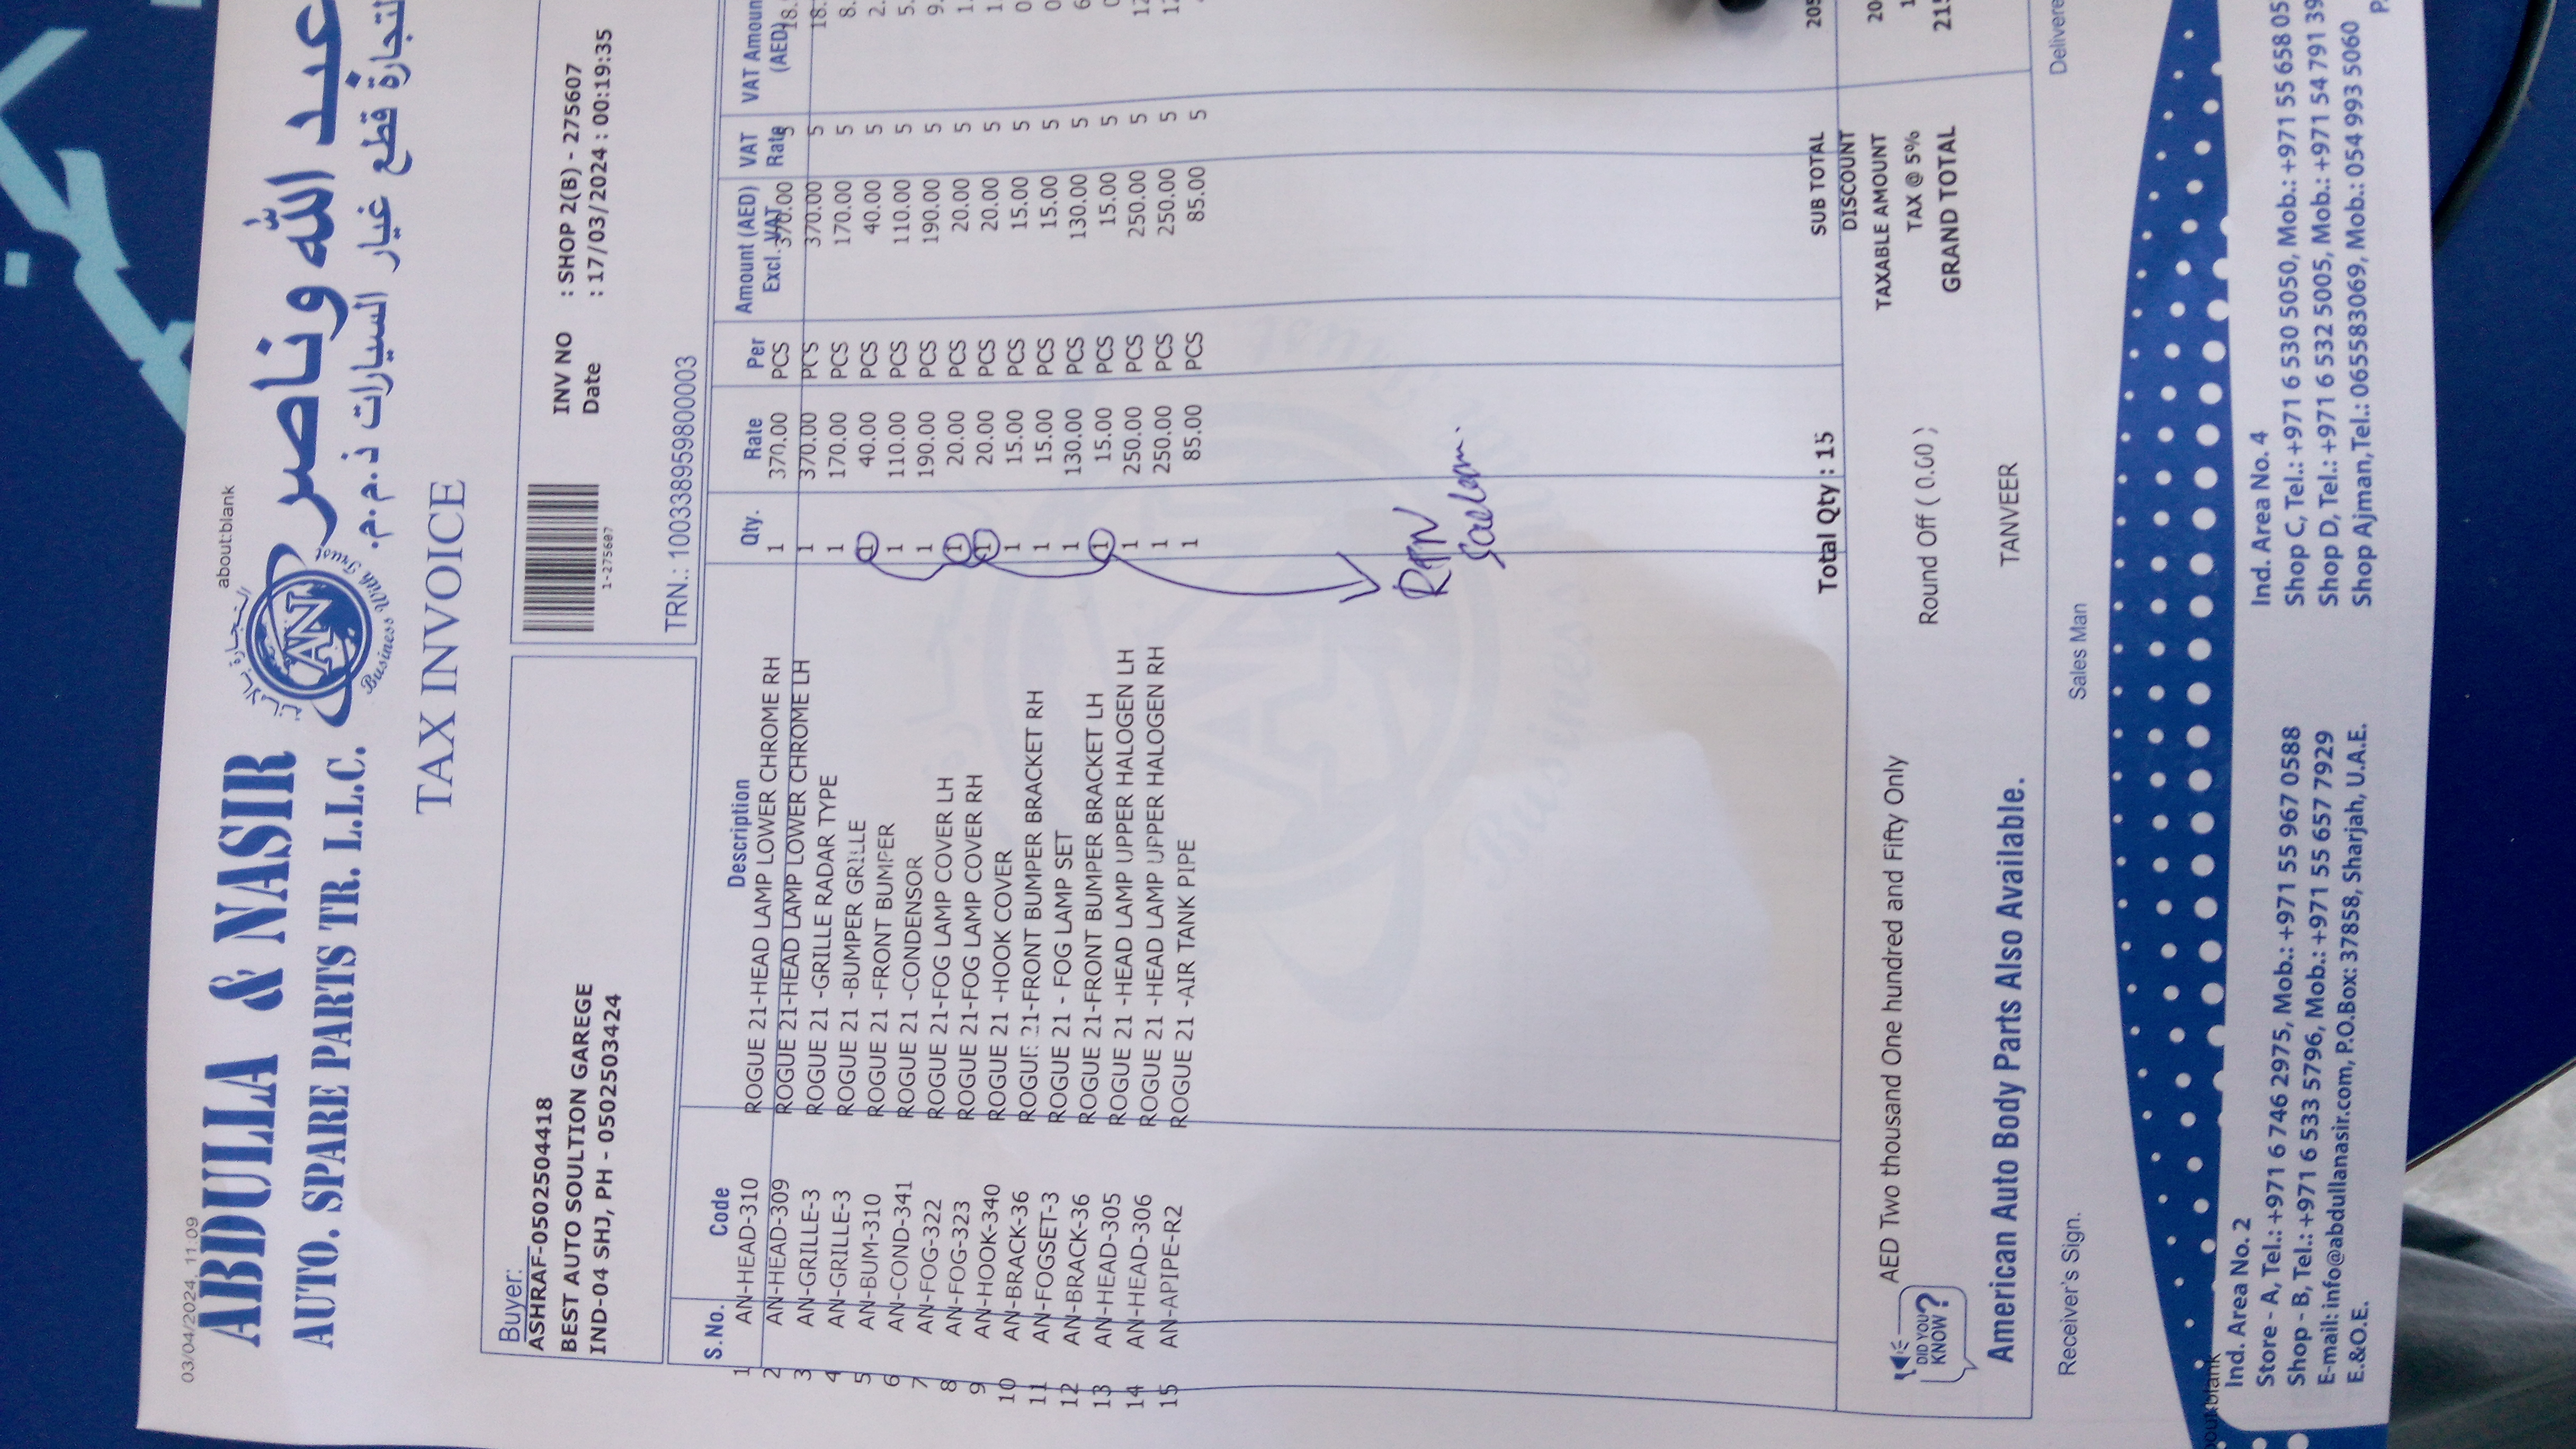 03/04/2024, 11:09
about:blank
ABDULLA & NASIR
AUTO. SPARE PARTS TR. L.L.C.
عبد الله وناصر
لتجارة قطع غيار السيارات ذ.م.م.
AN
Business With Trust
TAX INVOICE
Buyer:
ASHRAF-0502504418
BEST AUTO SOULTION GAREGE
IND-04 SHJ, PH - 0502503424
1-275607
INV NO : SHOP 2(B) - 275607
Date : 17/03/2024 : 00:19:35
TRN.: 100338959800003
S.No. Code Description Qty. Rate Per Amount (AED) Excl. VAT VAT Rate VAT Amoun (AED)
1 AN-HEAD-310 ROGUE 21-HEAD LAMP LOWER CHROME RH 1 370.00 PCS 370.00 5 18.
2 AN-HEAD-309 ROGUE 21-HEAD LAMP LOWER CHROME LH 1 370.00 PCS 370.00 5 18.
3 AN-GRILLE-3 ROGUE 21 -GRILLE RADAR TYPE 1 170.00 PCS 170.00 5 8.
4 AN-GRILLE-3 ROGUE 21 -BUMPER GRILLE 1 40.00 PCS 40.00 5 2.
5 AN-BUM-310 ROGUE 21 -FRONT BUMPER 1 110.00 PCS 110.00 5 5.
6 AN-COND-341 ROGUE 21 -CONDENSOR 1 190.00 PCS 190.00 5 9.
7 AN-FOG-322 ROGUE 21-FOG LAMP COVER LH 1 20.00 PCS 20.00 5 1.
8 AN-FOG-323 ROGUE 21-FOG LAMP COVER RH 1 20.00 PCS 20.00 5 1.
9 AN-HOOK-340 ROGUE 21 -HOOK COVER 1 15.00 PCS 15.00 5 0
10 AN-BRACK-36 ROGUE 21-FRONT BUMPER BRACKET RH 1 15.00 PCS 15.00 5 0
11 AN-FOGSET-3 ROGUE 21 - FOG LAMP SET 1 130.00 PCS 130.00 5 6
12 AN-BRACK-36 ROGUE 21-FRONT BUMPER BRACKET LH 1 15.00 PCS 15.00 5 0
13 AN-HEAD-305 ROGUE 21 -HEAD LAMP UPPER HALOGEN LH 1 250.00 PCS 250.00 5 12
14 AN-HEAD-306 ROGUE 21 -HEAD LAMP UPPER HALOGEN RH 1 250.00 PCS 250.00 5 12
15 AN-APIPE-R2 ROGUE 21 -AIR TANK PIPE 1 85.00 PCS 85.00 5
RTN
Total Qty : 15
SUB TOTAL 205
DISCOUNT
TAXABLE AMOUNT 20
TAX @ 5% 1
GRAND TOTAL 215
DID YOU KNOW?
AED Two thousand One hundred and Fifty Only
Round Off ( 0.00 )
American Auto Body Parts Also Available.
TANVEER
Receiver's Sign.
Sales Man
Delivere
Ind. Area No. 2
Store - A, Tel.: +971 6 746 2975, Mob.: +971 55 967 0588
Shop - B, Tel.: +971 6 533 5796, Mob.: +971 55 657 7929
E-mail: info@abdullanasir.com, P.O.Box: 37858, Sharjah, U.A.E.
E.&O.E.
Ind. Area No. 4
Shop C, Tel.: +971 6 530 5050, Mob.: +971 55 658 05
Shop D, Tel.: +971 6 532 5005, Mob.: +971 54 791 39
Shop Ajman,Tel.: 065583069, Mob.: 054 993 5060